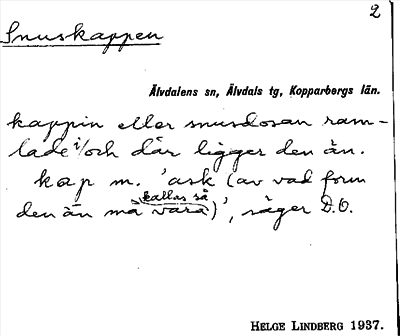 2
Snuskappen
Älvdalens sn, Älvdals tg, Kopparbergs län.
kappin eller snusdosan ram-
lade i/och där ligger den än.
kap m. 'ask (av vad form
kallas så
den än må vara)', säger D.O.
HELGE LINDBERG 1937.